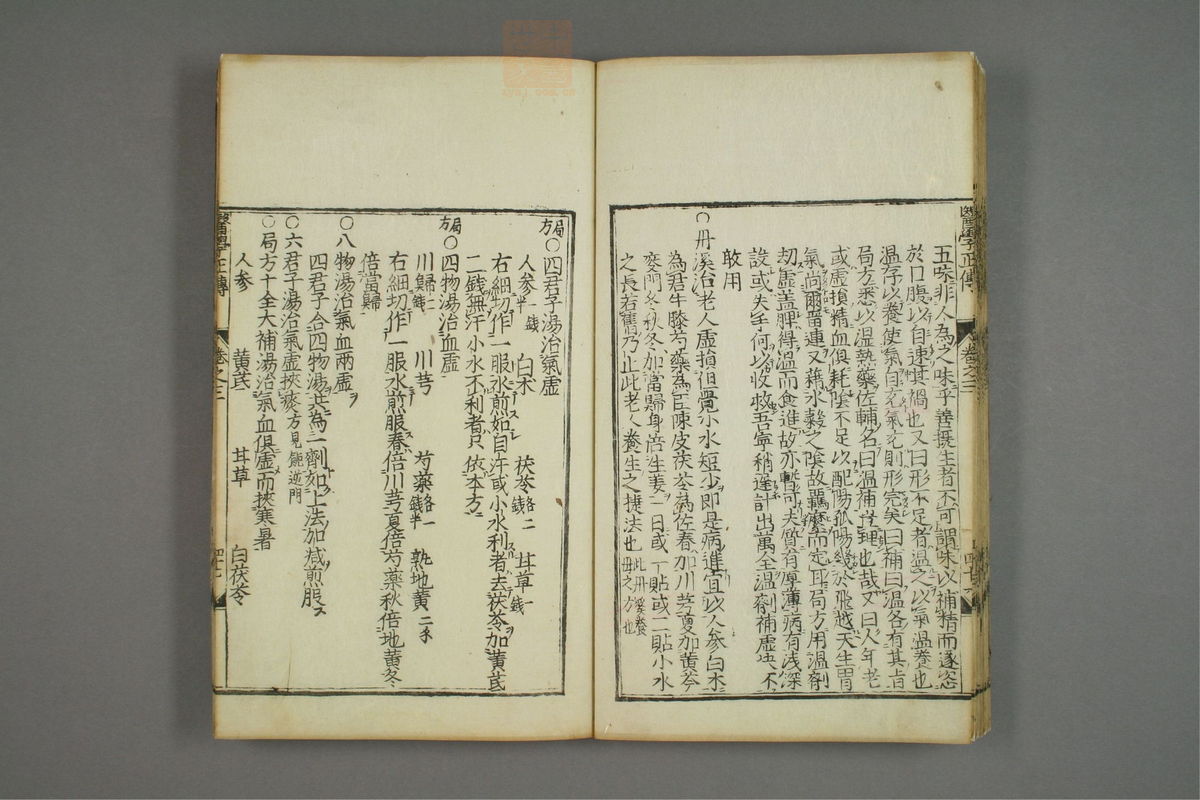 醫學正傳
卷之三
五味非人為之味乎善攝生者不可謂味以補精而遂恣
於口腹以自速其禍也又曰形不足者溫之以氣溫養也
溫存以養使氣自充氣充則形完矣曰補曰溫各有其旨
局方悉以溫熱藥佐輔名曰溫補豈理也哉又曰人年老
或虛損精血俱耗陰不足以配陽孤陽幾於飛越天生胃
氣尚爾留連又藉水穀之陰故羈縻而定耳局方用溫劑
劫虛蓋脾得溫而食進故亦暫可夫質有厚薄病有淺深
設或失手何以收救吾寧稍遲計出萬全溫劑補虛决不
敢用
○丹溪治老人虛損但覺小水短少即是病進宜以人參白朮
為君牛膝芍藥為臣陳皮茯苓為佐春加川芎夏加黃芩
麥門冬秋冬加當歸身倍生姜一日或一貼或二貼小水
之長若舊乃止此老人養生之捷法也 此丹溪養母之方也
局方○四君子湯治氣虛
人參一錢半 白朮 茯苓各二錢 甘草一錢
右細切作一服水煎如自汗或小水利者去茯苓加黃芪
二錢無汗小水不利者只依本方
局方○四物湯治血虛
川歸二錢 川芎 芍藥各一錢半 熟地黃二錢
右細切作一服水煎服春倍川芎夏倍芍藥秋倍地黃冬
倍當歸
○八物湯治氣血兩虛
四君子合四物湯共為一劑如上法加減煎服
○六君子湯治氣虛挾痰方見噦逆門
○局方十全大補湯治氣血俱虛而挾寒暑
人參 黃芪 甘草 白茯苓
醫學正傳
卷之三